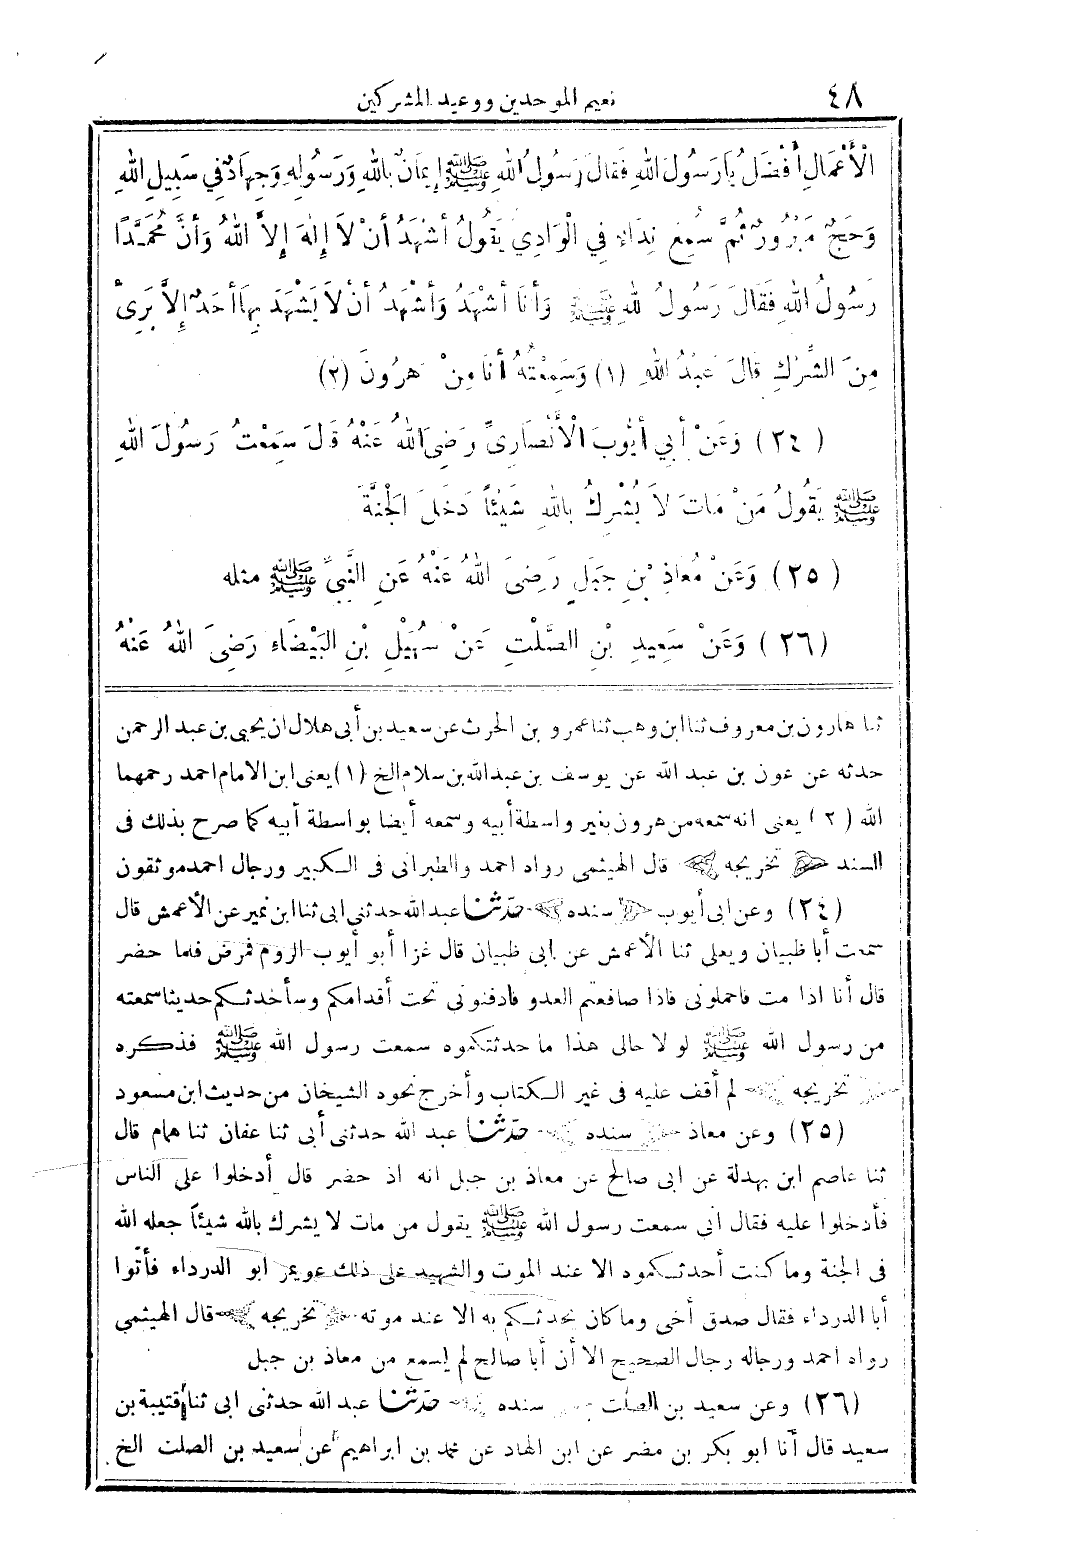 ٤٨ نعيم الموحدين ووعيد المشركين
الْأَعْمَالِ أَفْضَلُ يَا رَسُولَ اللهِ فَقَالَ رَسُولُ اللهِ ﷺ إِيمَانٌ بِاللهِ وَرَسُولِهِ وَجِهَادٌ فِي سَبِيلِ اللهِ
وَحَجٌّ مَبْرُورٌ ثُمَّ سُمِعَ نِدَاءٌ فِي الْوَادِي يَقُولُ أَشْهَدُ أَنْ لَا إِلٰهَ إِلَّا اللهُ وَأَنَّ مُحَمَّدًا
رَسُولُ اللهِ فَقَالَ رَسُولُ اللهِ ﷺ وَأَنَا أَشْهَدُ وَأَشْهَدُ أَنْ لَا يَشْهَدَ بِهَا أَحَدٌ إِلَّا بَرِئَ
مِنَ الشِّرْكِ قَالَ عَبْدُ اللهِ (١) وَسَمِعْتُهُ أَنَا مِنْ هٰرُونَ (٢)
(٢٤) وَعَنْ أَبِي أَيُّوبَ الْأَنْصَارِيِّ رَضِيَ اللهُ عَنْهُ قَالَ سَمِعْتُ رَسُولَ اللهِ
ﷺ يَقُولُ مَنْ مَاتَ لَا يُشْرِكُ بِاللهِ شَيْئاً دَخَلَ الْجَنَّةَ
(٢٥) وَعَنْ مُعَاذِ بْنِ جَبَلٍ رَضِيَ اللهُ عَنْهُ عَنِ النَّبِيِّ ﷺ مثله
(٢٦) وَعَنْ سَعِيدِ بْنِ الصَّلْتِ عَنْ سُهَيْلِ بْنِ الْبَيْضَاءِ رَضِيَ اللهُ عَنْهُ
ثنا هارون بن معروف ثنا ابن وهب ثنا عمرو بن الحرث عن سعيد بن أبى هلال ان يحيى بن عبد الرحمن
حدثه عن عون بن عبد الله عن يوسف بن عبد الله بن سلام الخ (١) يعنى ابن الامام احمد رحمهما
الله (٢) يعنى انه سمعه من هرون بغير واسطة أبيه وسمعه أيضا بواسطة أبيه كما صرح بذلك فى
السند تخريجه قال الهيثمى رواه احمد والطبرانى فى الكبير ورجال احمد موثقون
(٢٤) وعن ابى أيوب سنده حدّثنا عبد الله حدثنى ابى ثنا ابن نمير عن الأعمش قال
سمعت أبا ظبيان ويعلى ثنا الأعمش عن ابى ظبيان قال غزا أبو أيوب الروم فمرض فلما حضر
قال أنا اذا مت فاحملونى فاذا صافعتم العدو فادفنونى تحت أقدامكم وسأحدثكم حديثا سمعته
من رسول الله ﷺ لو لا حالى هذا ما حدثتكموه سمعت رسول الله ﷺ فذكره
تخريجه لم أقف عليه فى غير الكتاب وأخرج نحوه الشيخان من حديث ابن مسعود
(٢٥) وعن معاذ سنده حدّثنا عبد الله حدثنى أبى ثنا عفان ثنا همام قال
ثنا عاصم ابن بهدلة عن ابى صالح عن معاذ بن جبل انه اذ حضر قال أدخلوا على الناس
فأدخلوا عليه فقال انى سمعت رسول الله ﷺ يقول من مات لا يشرك بالله شيئاً جعله الله
فى الجنة وما كنت أحدثكموه الا عند الموت والشهيد على ذلك عويمر ابو الدرداء فأتوا
أبا الدرداء فقال صدق أخى وما كان يحدثكم به الا عند موته تخريجه قال الهيثمى
رواه احمد ورجاله رجال الصحيح الا أن أبا صالح لم يسمع من معاذ بن جبل
(٢٦) وعن سعيد بن الصلت سنده حدّثنا عبد الله حدثنى ابى ثنا قتيبة بن
سعيد قال أنا ابو بكر بن مضر عن ابن الهاد عن محمد بن ابراهيم عن سعيد بن الصلت الخ